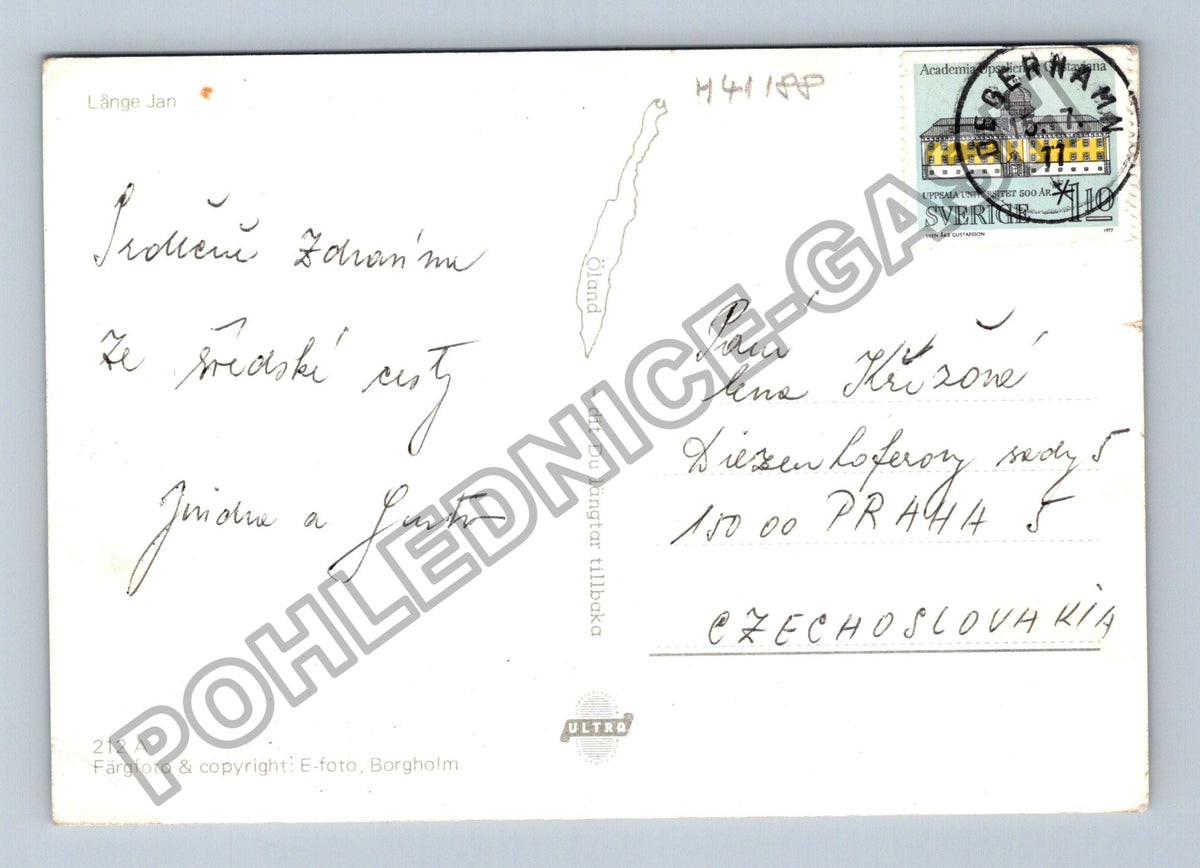 Långe Jan
M41188
Academia Upsaliensis Gustaviana
UPPSALA UNIVERSITET 500 ÅR
SVERIGE 110
SVEN ÅKE GUSTAFSSON 1977
DEGERHAMN
15. 7.
77
Srdečně zdravíme
ze švédské cesty
Jindra a
Öland - dit Du längtar tillbaka
Paní
Lena Křížová
Diezenhoferovy sady 5
150 00 PRAHA 5
CZECHOSLOVAKIA
ULTRA
212 A
Färgfoto & copyright: E-foto, Borgholm